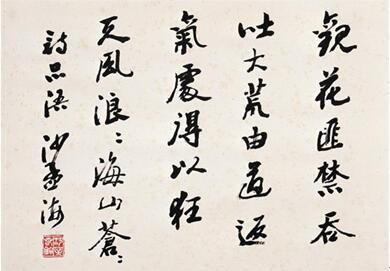 觀花匪禁吞
吐大荒由道返
氣處得以狂
天風浪浪海山蒼蒼
詩品語 沙孟海